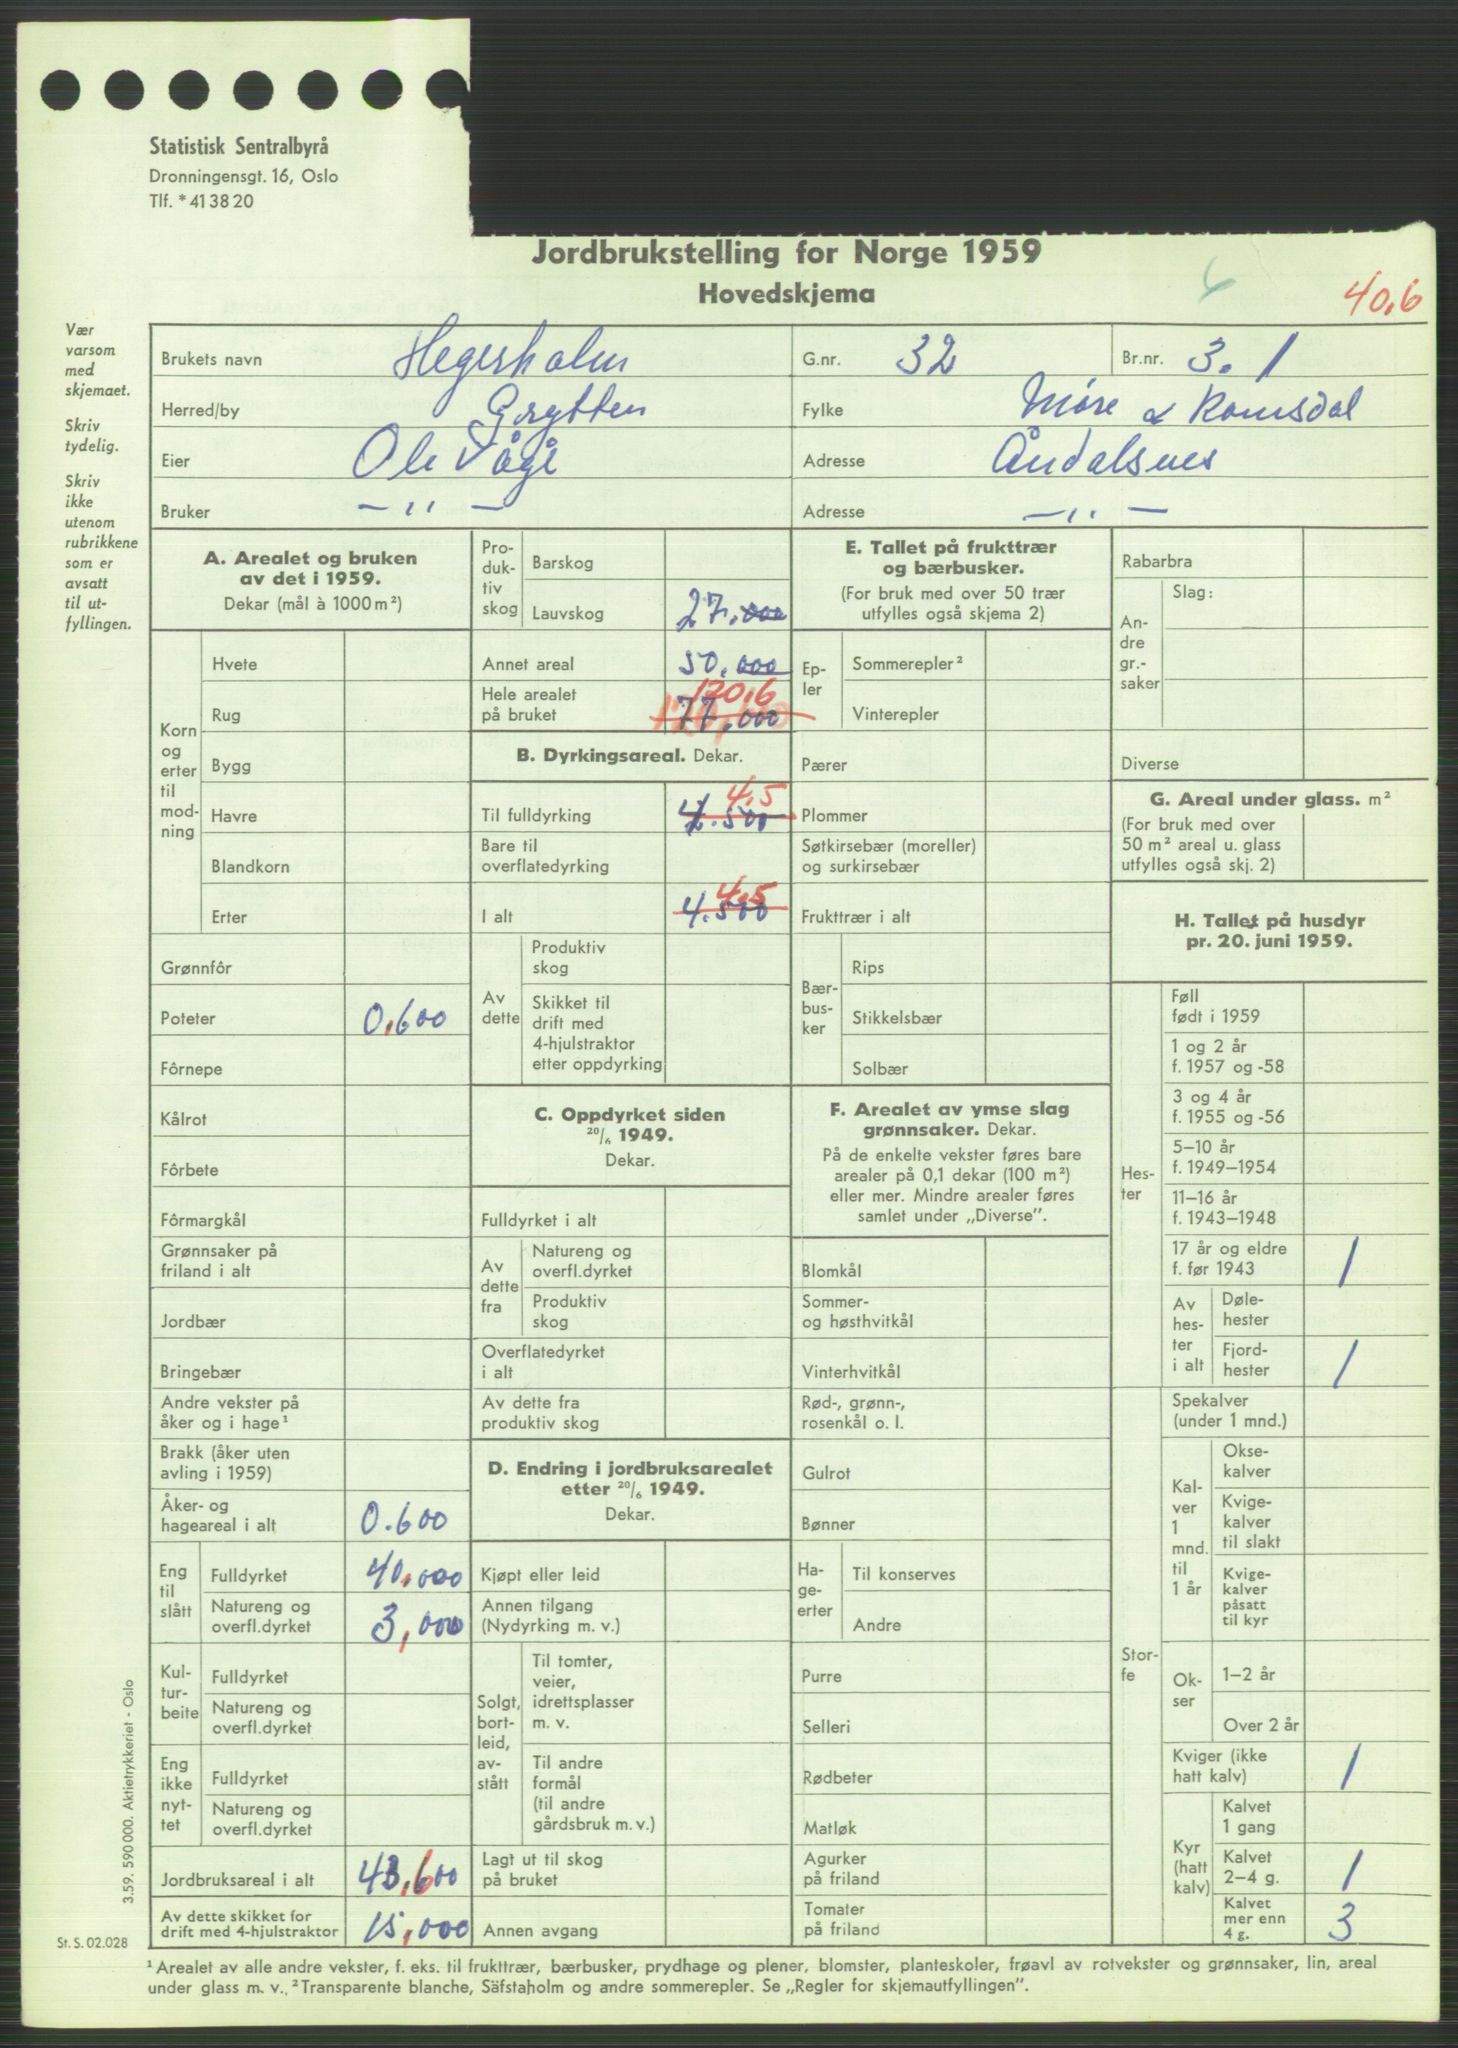 Statistisk Sentralbyrå
Dronningensgt. 16, Oslo
Tlf. * 41 38 20
Jordbrukstelling for Norge 1959
Hovedskjema
40,6
Vær
varsom
med
skjemaet.
Skriv
tydelig.
Skriv
ikke
utenom
rubrikkene
som er
avsatt
til ut-
fyllingen.
Brukets navn Hegerholm G.nr. 32 Br.nr. 3. 1
Herred/by Grytten Fylke Møre & Romsdal
Eier Ole Vågå Adresse Åndalsnes
Bruker — " — Adresse — " —
A. Arealet og bruken
av det i 1959.
Dekar (mål à 1000 m²)
Korn
og
erter
til
mod-
ning
Hvete
Rug
Bygg
Havre
Blandkorn
Erter
Grønnfôr
Poteter 0,600
Fôrnepe
Kålrot
Fôrbete
Fôrmargkål
Grønnsaker på
friland i alt
Jordbær
Bringebær
Andre vekster på
åker og i hage¹
Brakk (åker uten
avling i 1959)
Åker- og
hageareal i alt 0.600
Eng
til
slått
Fulldyrket 40,000
Natureng og
overfl.dyrket 3,000
Kul-
tur-
beite
Fulldyrket
Natureng og
overfl.dyrket
Eng
ikke
nyt-
tet
Fulldyrket
Natureng og
overfl.dyrket
Jordbruksareal i alt 43,600
Av dette skikket for
drift med 4-hjulstraktor 15,000
Pro-
duk-
tiv
skog
Barskog
Lauvskog 27.000
Annet areal 50.000
Hele arealet 120,6
på bruket 77,000
B. Dyrkingsareal. Dekar.
4,5
Til fulldyrking 4.500
Bare til
overflatedyrking
4,5
I alt 4.500
Av
dette
Produktiv
skog
Skikket til
drift med
4-hjulstraktor
etter oppdyrking
C. Oppdyrket siden
20/6 1949.
Dekar.
Fulldyrket i alt
Av
dette
fra
Natureng og
overfl.dyrket
Produktiv
skog
Overflatedyrket
i alt
Av dette fra
produktiv skog
D. Endring i jordbruksarealet
etter 20/6 1949.
Dekar.
Kjøpt eller leid
Annen tilgang
(Nydyrking m. v.)
Solgt,
bort-
leid,
av-
stått
Til tomter,
veier,
idrettsplasser
m. v.
Til andre
formål
(til andre
gårdsbruk m. v.)
Lagt ut til skog
på bruket
Annen avgang
E. Tallet på frukttrær
og bærbusker.
(For bruk med over 50 trær
utfylles også skjema 2)
Ep-
ler
Sommerepler²
Vinterepler
Pærer
Plommer
Søtkirsebær (moreller)
og surkirsebær
Frukttrær i alt
Bær-
bus-
ker
Rips
Stikkelsbær
Solbær
F. Arealet av ymse slag
grønnsaker. Dekar.
På de enkelte vekster føres bare
arealer på 0,1 dekar (100 m²)
eller mer. Mindre arealer føres
samlet under „Diverse”.
Blomkål
Sommer-
og høsthvitkål
Vinterhvitkål
Rød-, grønn-,
rosenkål o. l.
Gulrot
Bønner
Ha-
ge-
erter
Til konserves
Andre
Purre
Selleri
Rødbeter
Matløk
Agurker
på friland
Tomater
på friland
Rabarbra
An-
dre
gr.-
saker
Slag:
Diverse
G. Areal under glass. m²
(For bruk med over
50 m² areal u. glass
utfylles også skj. 2)
H. Tallet på husdyr
pr. 20. juni 1959.
Hes-
ter
Føll
født i 1959
1 og 2 år
f. 1957 og -58
3 og 4 år
f. 1955 og -56
5–10 år
f. 1949–1954
11–16 år
f. 1943–1948
17 år og eldre
f. før 1943 1
Av
hes-
ter
i alt
Døle-
hester
Fjord-
hester 1
Stor-
fe
Spekalver
(under 1 mnd.)
Kal-
ver
1
mnd.
til
1 år
Okse-
kalver
Kvige-
kalver
til slakt
Kvige-
kalver
påsatt
til kyr
Ok-
ser
1–2 år
Over 2 år
Kviger (ikke
hatt kalv) 1
Kyr
(hatt
kalv)
Kalvet
1 gang
Kalvet
2–4 g. 1
Kalvet
mer enn
4 g. 3
3.59. 590 000. Aktietrykkeriet - Oslo
St. S. 02.028
¹ Arealet av alle andre vekster, f. eks. til frukttrær, bærbusker, prydhage og plener, blomster, planteskoler, frøavl av rotvekster og grønnsaker, lin, areal
under glass m. v. ² Transparente blanche, Säfstaholm og andre sommerepler. Se „Regler for skjemautfyllingen”.